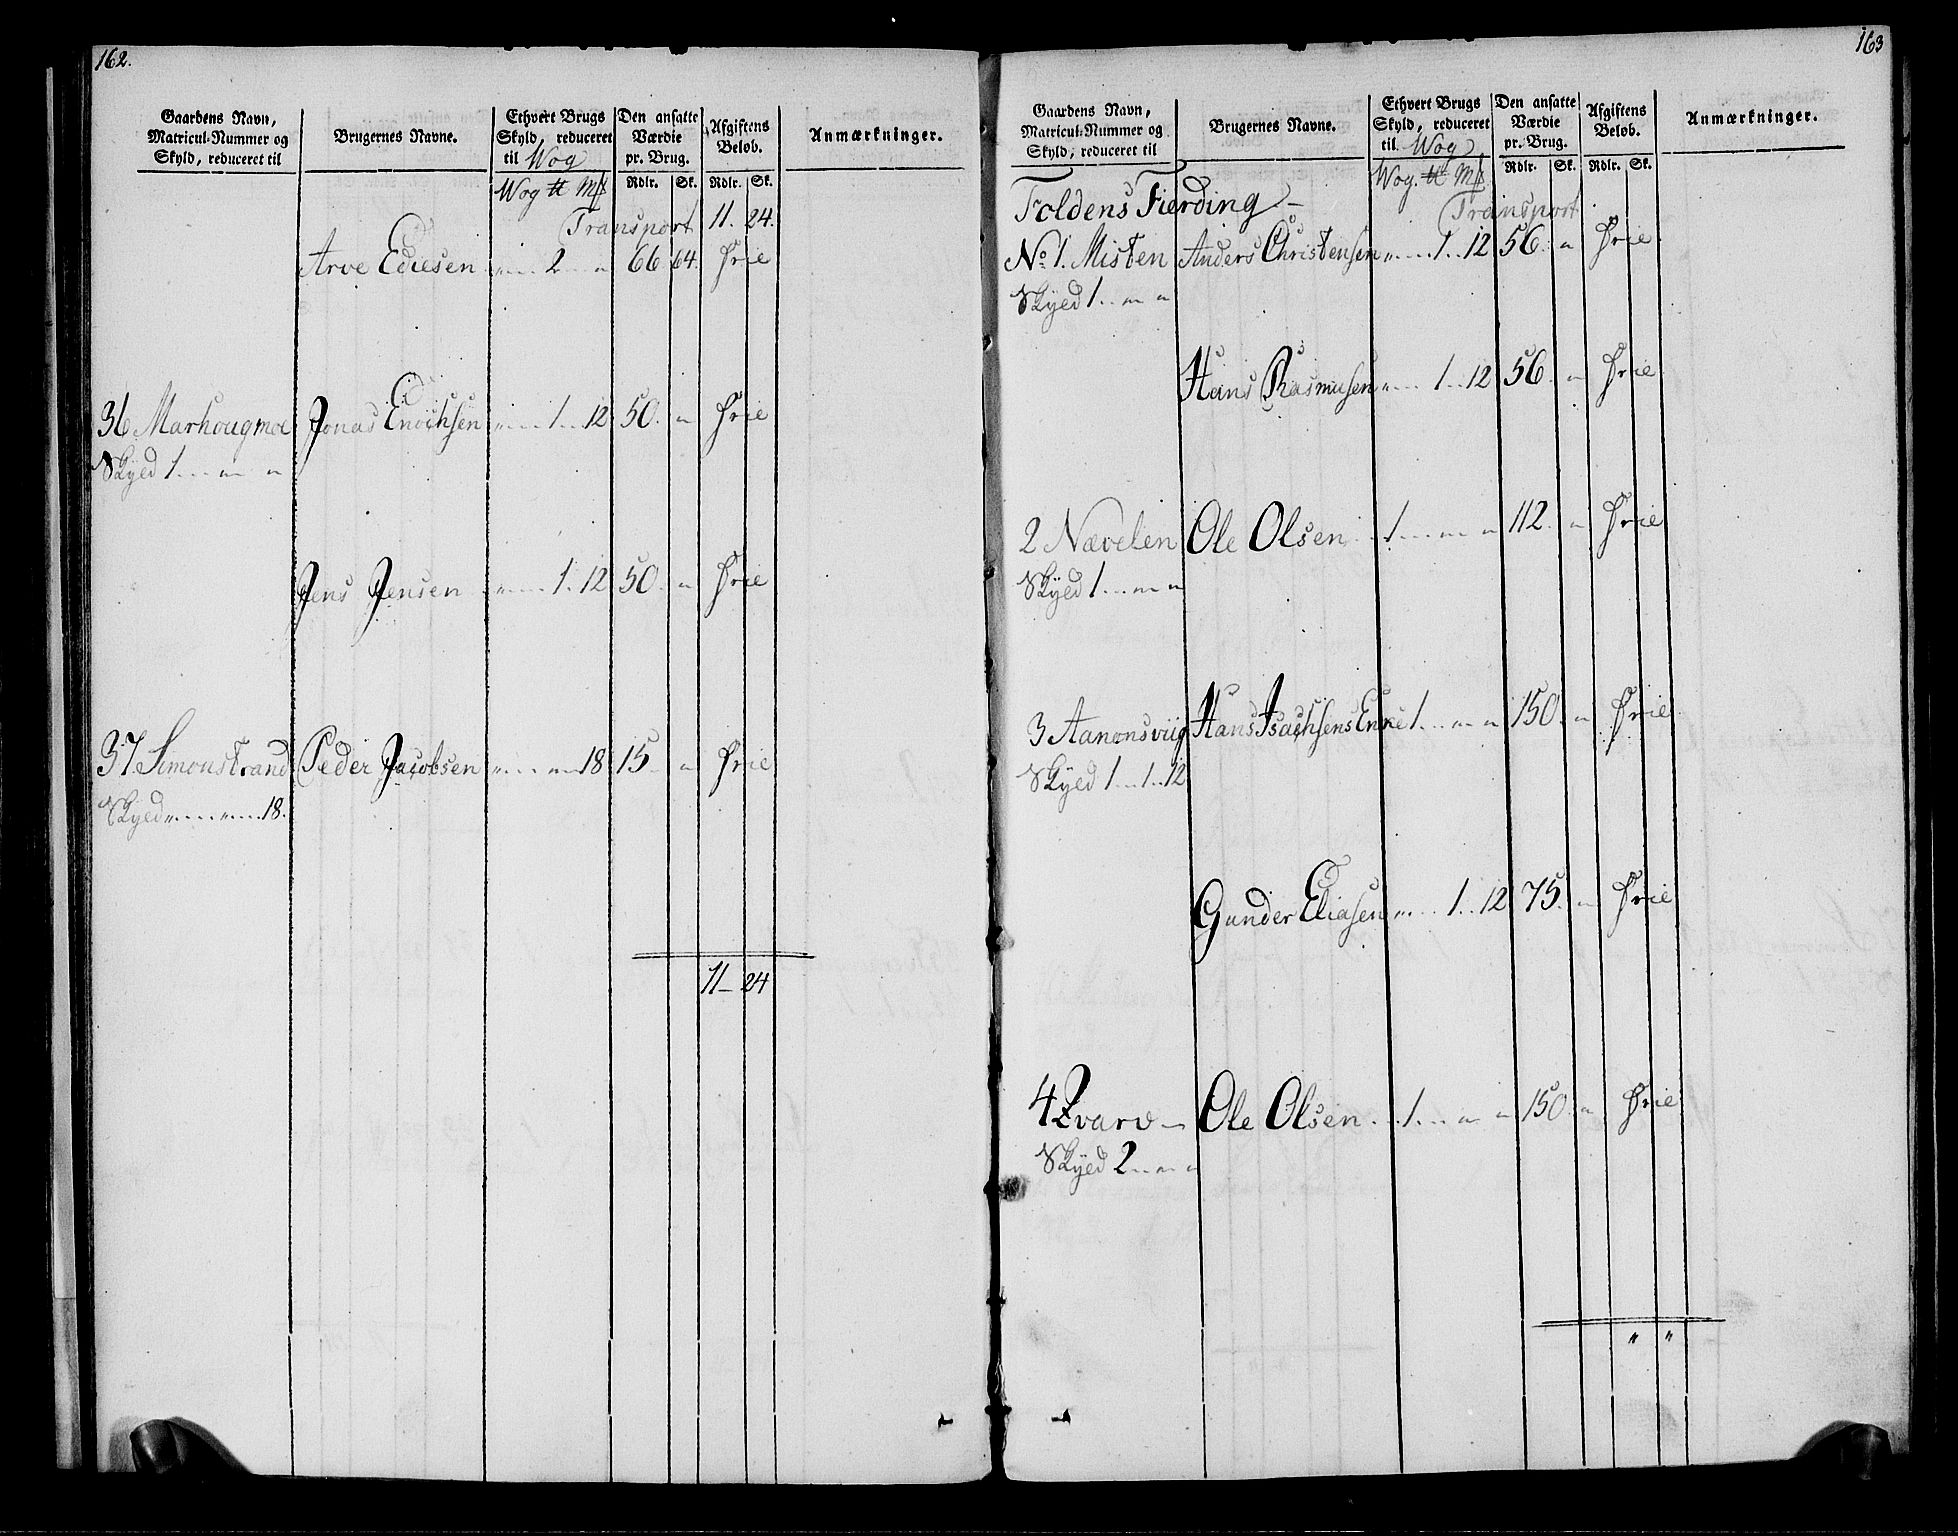 162.
Gaardens Navn, Matricul-Nummer og Skyld, reduceret til
Brugernes Navne.
Ethvert Brugs Skyld, reduceret til Wog
Den ansatte Værdie pr. Brug.
Afgiftens Beløb.
Anmærkninger.
Wog ℔ Mk Rdlr. Sk. Rdlr. Sk.
Transport 11. 24.
Arve Ediesen „ 2 „ 66 64. Frie
36 Marhougmoe Jonas Enochsen „ 1 .. 12 50. „ Frie
Skyld 1 ... „ „
Jens Jensen „ 1 .. 12 50. „ Frie
37. Simonstrand Peder Jacobsen „ „ 18 15 „ Frie
Skyld „ „ 18.
11 – 24
163
Gaardens Navn, Matricul-Nummer og Skyld, reduceret til
Brugernes Navne.
Ethvert Brugs Skyld, reduceret til Wog
Den ansatte Værdie pr. Brug.
Afgiftens Beløb.
Anmærkninger.
Wog. ℔ Mk Rdlr. Sk. Rdlr. Sk.
Foldens Fierding –
Transport
No 1. Misten Anders Christensen „ 1 .. 12 56. „ Frie
Skyld 1 .. „ „
Hans Rasmusen „ 1 .. 12 56. „ Frie
2 Nævelen Ole Olsen 1 ... „ „ 112. „ Frie
Skyld 1 ... „ „
3 Aanonsviig Hans Isachsens Enke 1 ... „ „ 150. „ Frie
Skyld 1 ... 1 .. 12
Gunder Eliasen „ 1 .. 12 75. „ Frie
4 Qvarv – Ole Olsen 1 ... „ „ 150. „ Frie
Skyld 2 „ „
„ „